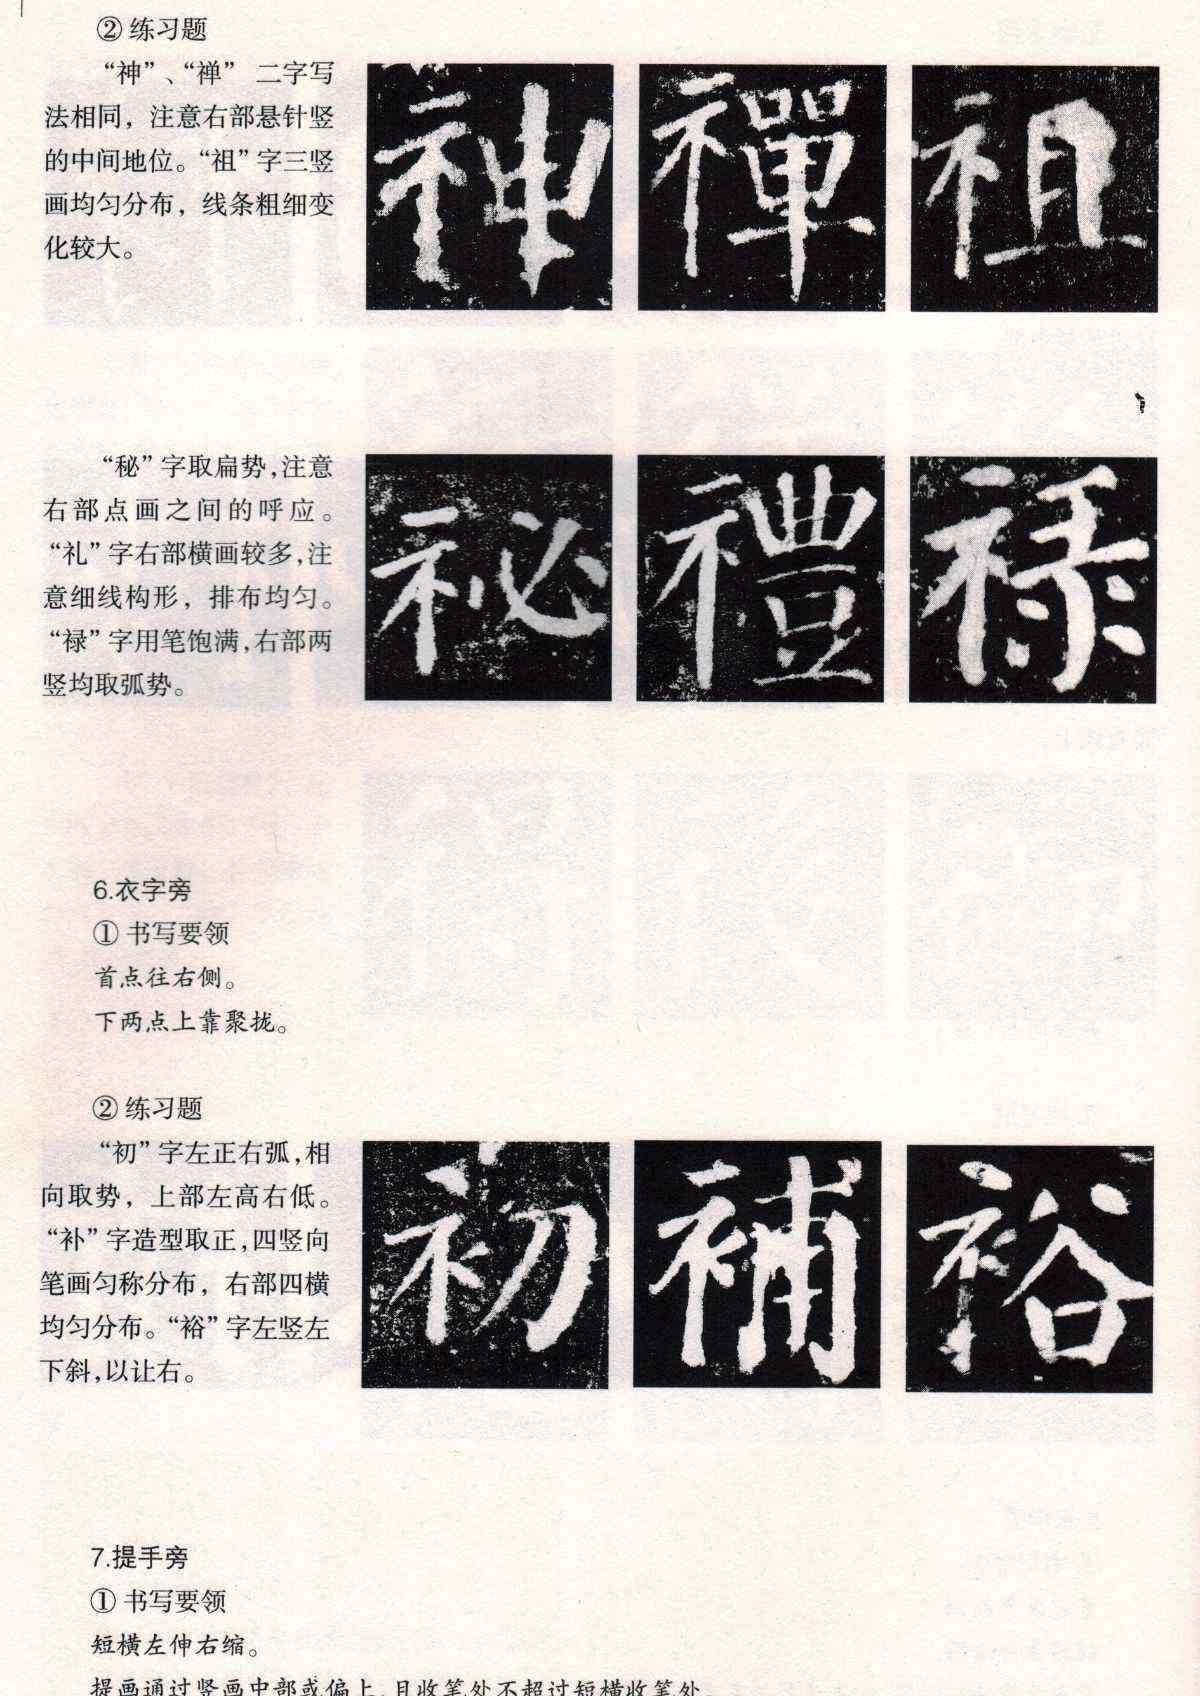 ② 练习题
“神”、“禅” 二字写
法相同，注意右部悬针竖
的中间地位。“祖”字三竖
画均匀分布，线条粗细变
化较大。
神 禪 祖
“秘”字取扁势，注意
右部点画之间的呼应。
“礼”字右部横画较多，注
意细线构形，排布均匀。
“禄”字用笔饱满，右部两
竖均取弧势。
祕 禮 禄
6.衣字旁
① 书写要领
首点往右侧。
下两点上靠聚拢。
② 练习题
“初”字左正右弧，相
向取势，上部左高右低。
“补”字造型取正，四竖向
笔画匀称分布，右部四横
均匀分布。“裕”字左竖左
下斜，以让右。
初 補 裕
7.提手旁
① 书写要领
短横左伸右缩。
提画通过竖画中部或偏上，且收笔处不超过短横收笔处。